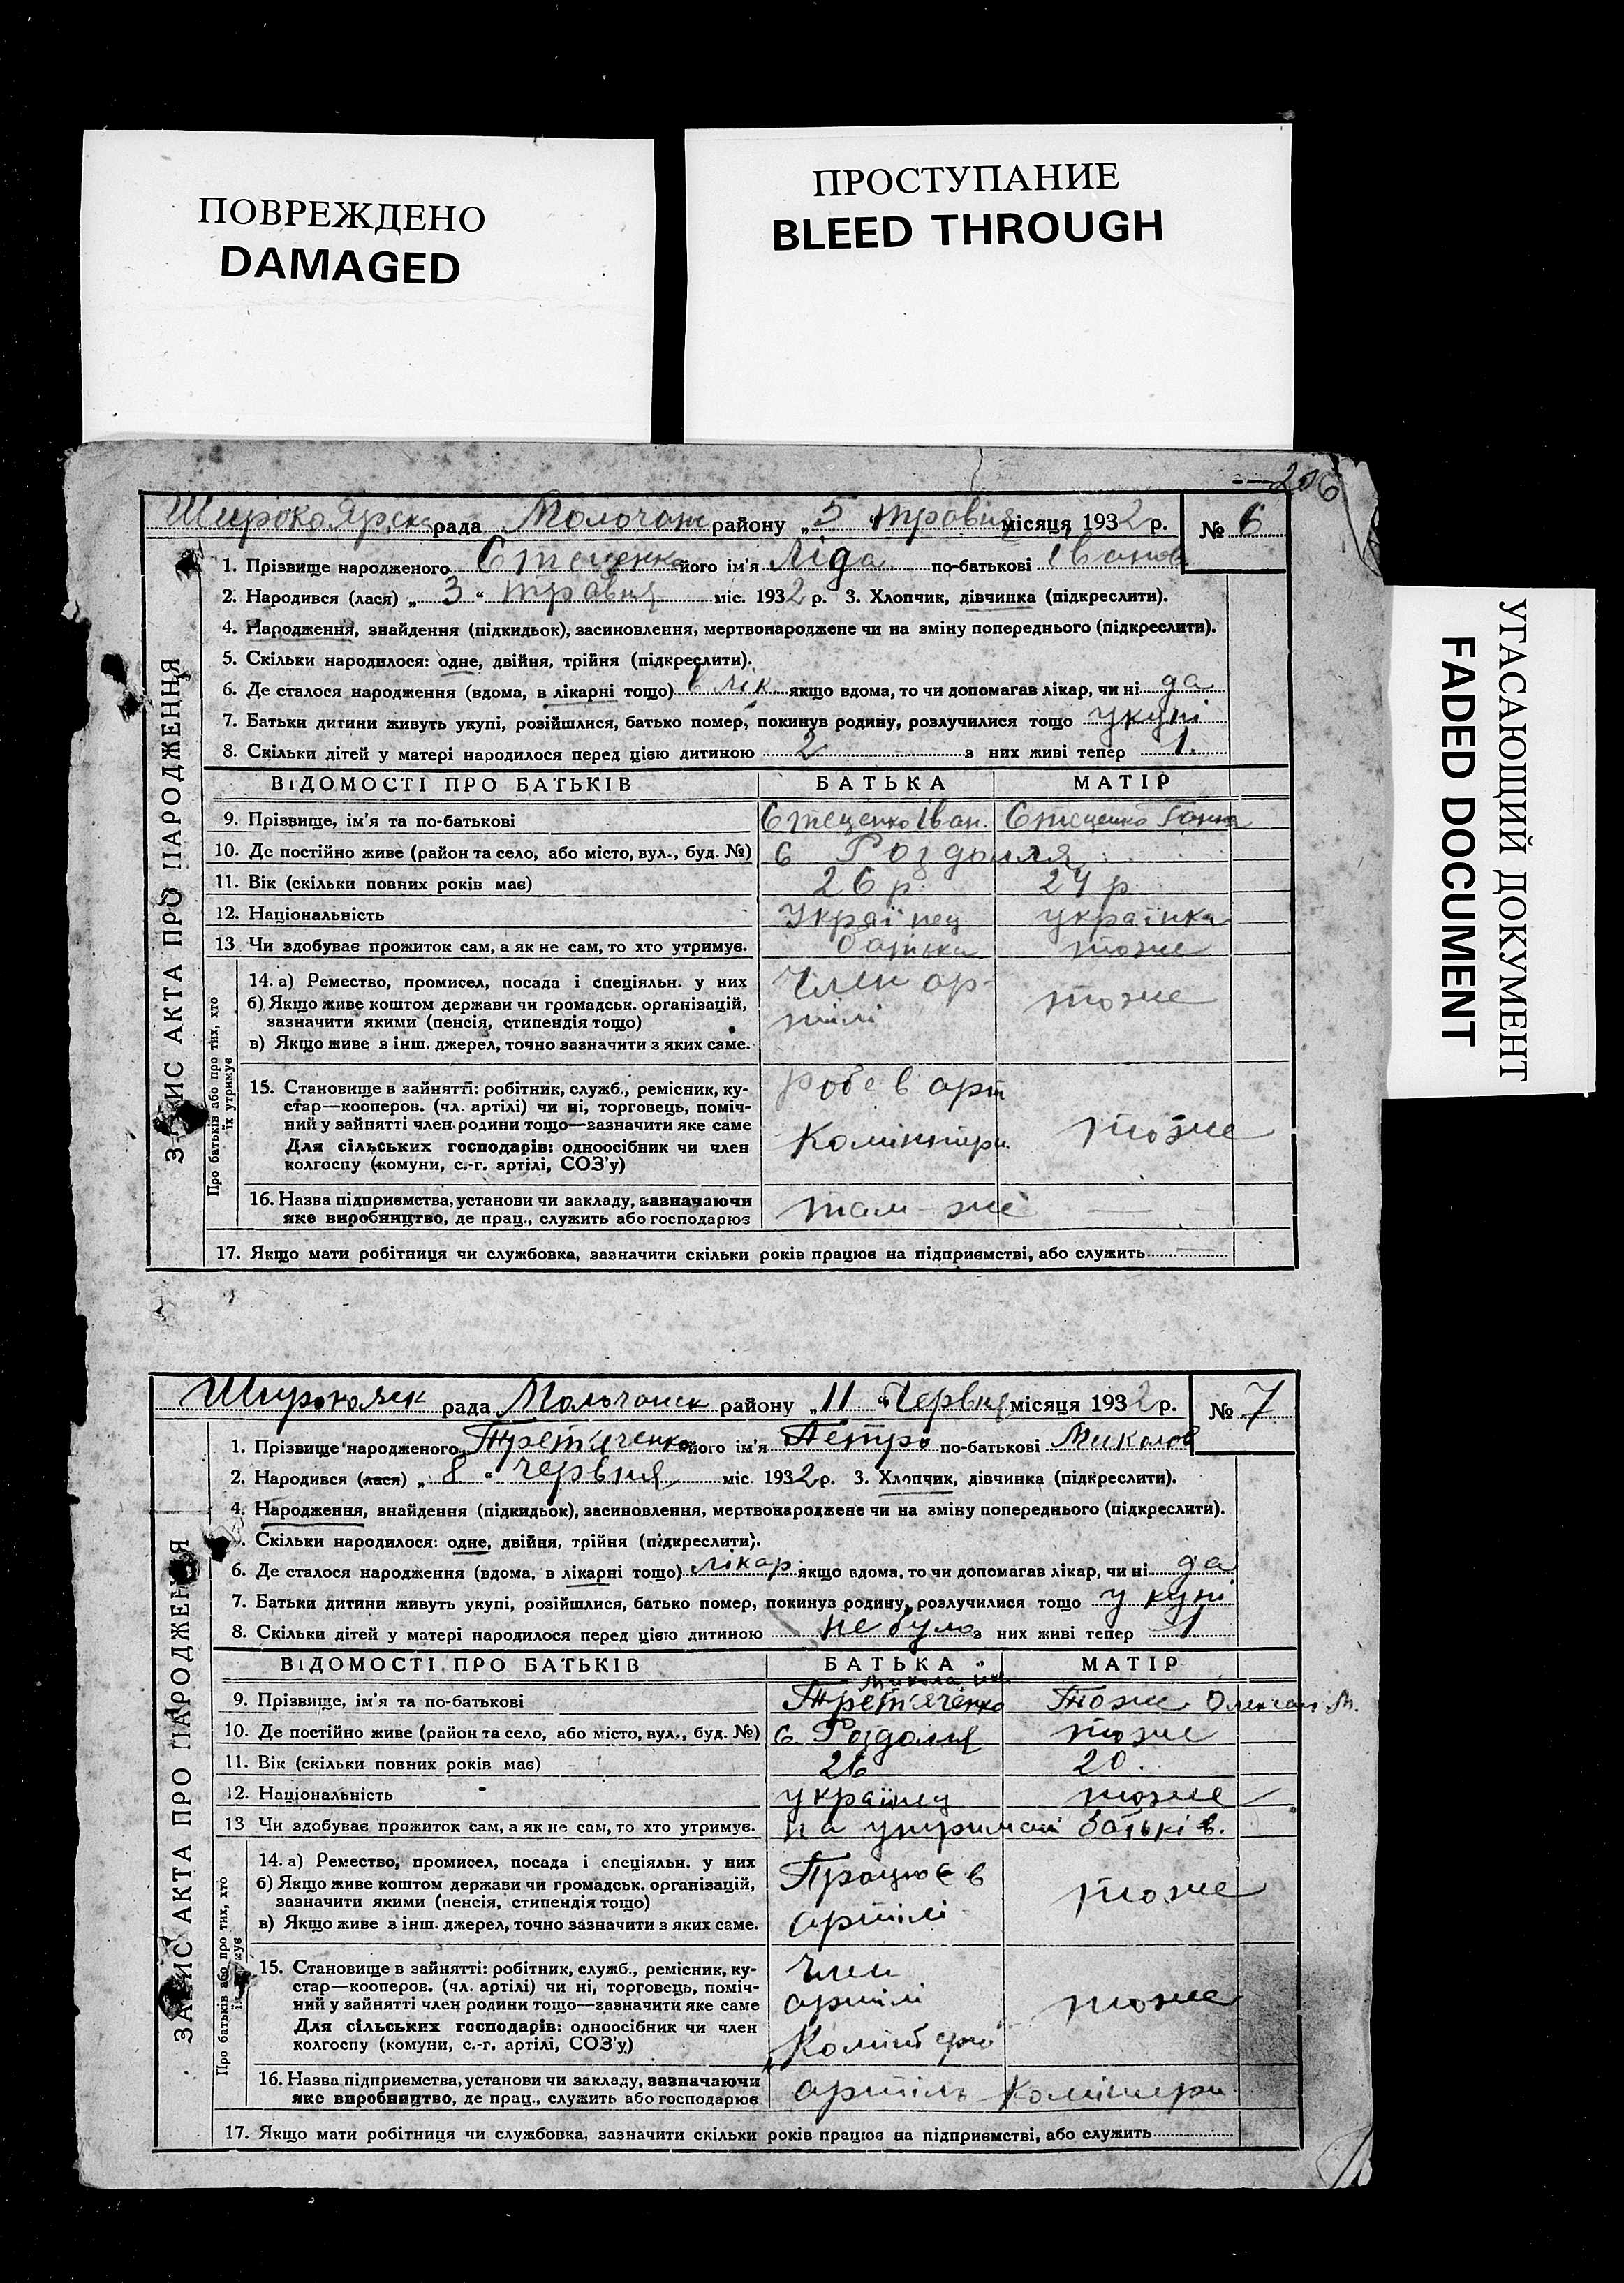 ПОВРЕЖДЕНО
DAMAGED
ПРОСТУПАНИЕ
BLEED THROUGH
УГАСАЮЩИЙ ДОКУМЕНТ
FADED DOCUMENT
206
ЗАПИС АКТА ПРО НАРОДЖЕННЯ
Широко Ярск рада Молочан району „5“ травня місяця 1932 р. № 6
1. Прізвище народженого Стеценко його ім'я Ліда по-батькові Іванов
2. Народився (лася) „3“ травня міс. 1932 р. 3. Хлопчик, дівчинка (підкреслити).
4. Народження, знайдення (підкидьок), засиновлення, мертвонароджене чи на зміну попереднього (підкреслити).
5. Скільки народилося: одне, двійня, трійня (підкреслити).
6. Де сталося народження (вдома, в лікарні тощо) в лік. якщо вдома, то чи допомагав лікар, чи ні да
7. Батьки дитини живуть укупі, розійшлися, батько помер, покинув родину, розлучилися тощо укупі
8. Скільки дітей у матері народилося перед цією дитиною 2 з них живі тепер 1.
ВІДОМОСТІ ПРО БАТЬКІВ БАТЬКА МАТІР
9. Прізвище, ім'я та по-батькові Стеценко Іван. Стеценко Ганна
10. Де постійно живе (район та село, або місто, вул., буд. №) с Роздолля
11. Вік (скільки повних років має) 26 р. 24 р
12. Національність Українец українка
13 Чи здобуває прожиток сам, а як не сам, то хто утримує. батька тоже
Про батьків або про тих, хто їх утримує
14. а) Ремество, промисел, посада і спеціяльн. у них Член ар-
б) Якщо живе коштом держави чи громадськ. організацій, тоже
зазначити якими (пенсія, стипендія тощо) тілі
в) Якщо живе з інш. джерел, точно зазначити з яких саме.
15. Становище в зайнятті: робітник, служб., ремісник, ку- робе в арт
стар—кооперов. (чл. артілі) чи ні, торговець, поміч-
ний у зайнятті член родини тощо—зазначити яке саме
Для сільських господарів: одноосібник чи член Комінтерн. тоже
колгоспу (комуни, с.-г. артілі, СОЗ'у)
16. Назва підприємства, установи чи закладу, зазначаючи
яке виробництво, де прац., служить або господарює там-же — —
17. Якщо мати робітниця чи службовка, зазначити скільки років працює на підприємстві, або служить —
ЗАПИС АКТА ПРО НАРОДЖЕННЯ
рада Молочанск району „11“ Червня місяця 1932 р. № 7
1. Прізвище народженого Третяченко його ім'я Петро по-батькові Миколов
2. Народився (лася) „8“ червня міс. 1932 р. 3. Хлопчик, дівчинка (підкреслити).
4. Народження, знайдення (підкидьок), засиновлення, мертвонароджене чи на зміну попереднього (підкреслити).
Скільки народилося: одне, двійня, трійня (підкреслити).
6. Де сталося народження (вдома, в лікарні тощо) лікар. якщо вдома, то чи допомагав лікар, чи ні да
7. Батьки дитини живуть укупі, розійшлися, батько помер, покинув родину, розлучилися тощо у купі
8. Скільки дітей у матері народилося перед цією дитиною не було з них живі тепер 1
ВІДОМОСТІ ПРО БАТЬКІВ БАТЬКА МАТІР
Микола
9. Прізвище, ім'я та по-батькові Третяченко Тоже
10. Де постійно живе (район та село, або місто, вул., буд. №) с. Роздолля тоже
11. Вік (скільки повних років має) 26 20.
12. Національність українец тоже
13 Чи здобуває прожиток сам, а як не сам, то хто утримує. на утриман батьків.
Про батьків або про тих, хто
14. а) Ремество, промисел, посада і спеціяльн. у них Працює в
б) Якщо живе коштом держави чи громадськ. організацій, тоже
зазначити якими (пенсія, стипендія тощо) артілі
в) Якщо живе з інш. джерел, точно зазначити з яких саме.
15. Становище в зайнятті: робітник, служб., ремісник, ку- Член
стар—кооперов. (чл. артілі) чи ні, торговець, поміч- артілі тоже
ний у зайнятті член родини тощо—зазначити яке саме
Для сільських господарів: одноосібник чи член
колгоспу (комуни, с.-г. артілі, СОЗ'у)
16. Назва підприємства, установи чи закладу, зазначаючи
яке виробництво, де прац., служить або господарює артіль Комінтерн.
17. Якщо мати робітниця чи службовка, зазначити скільки років працює на підприємстві, або служить